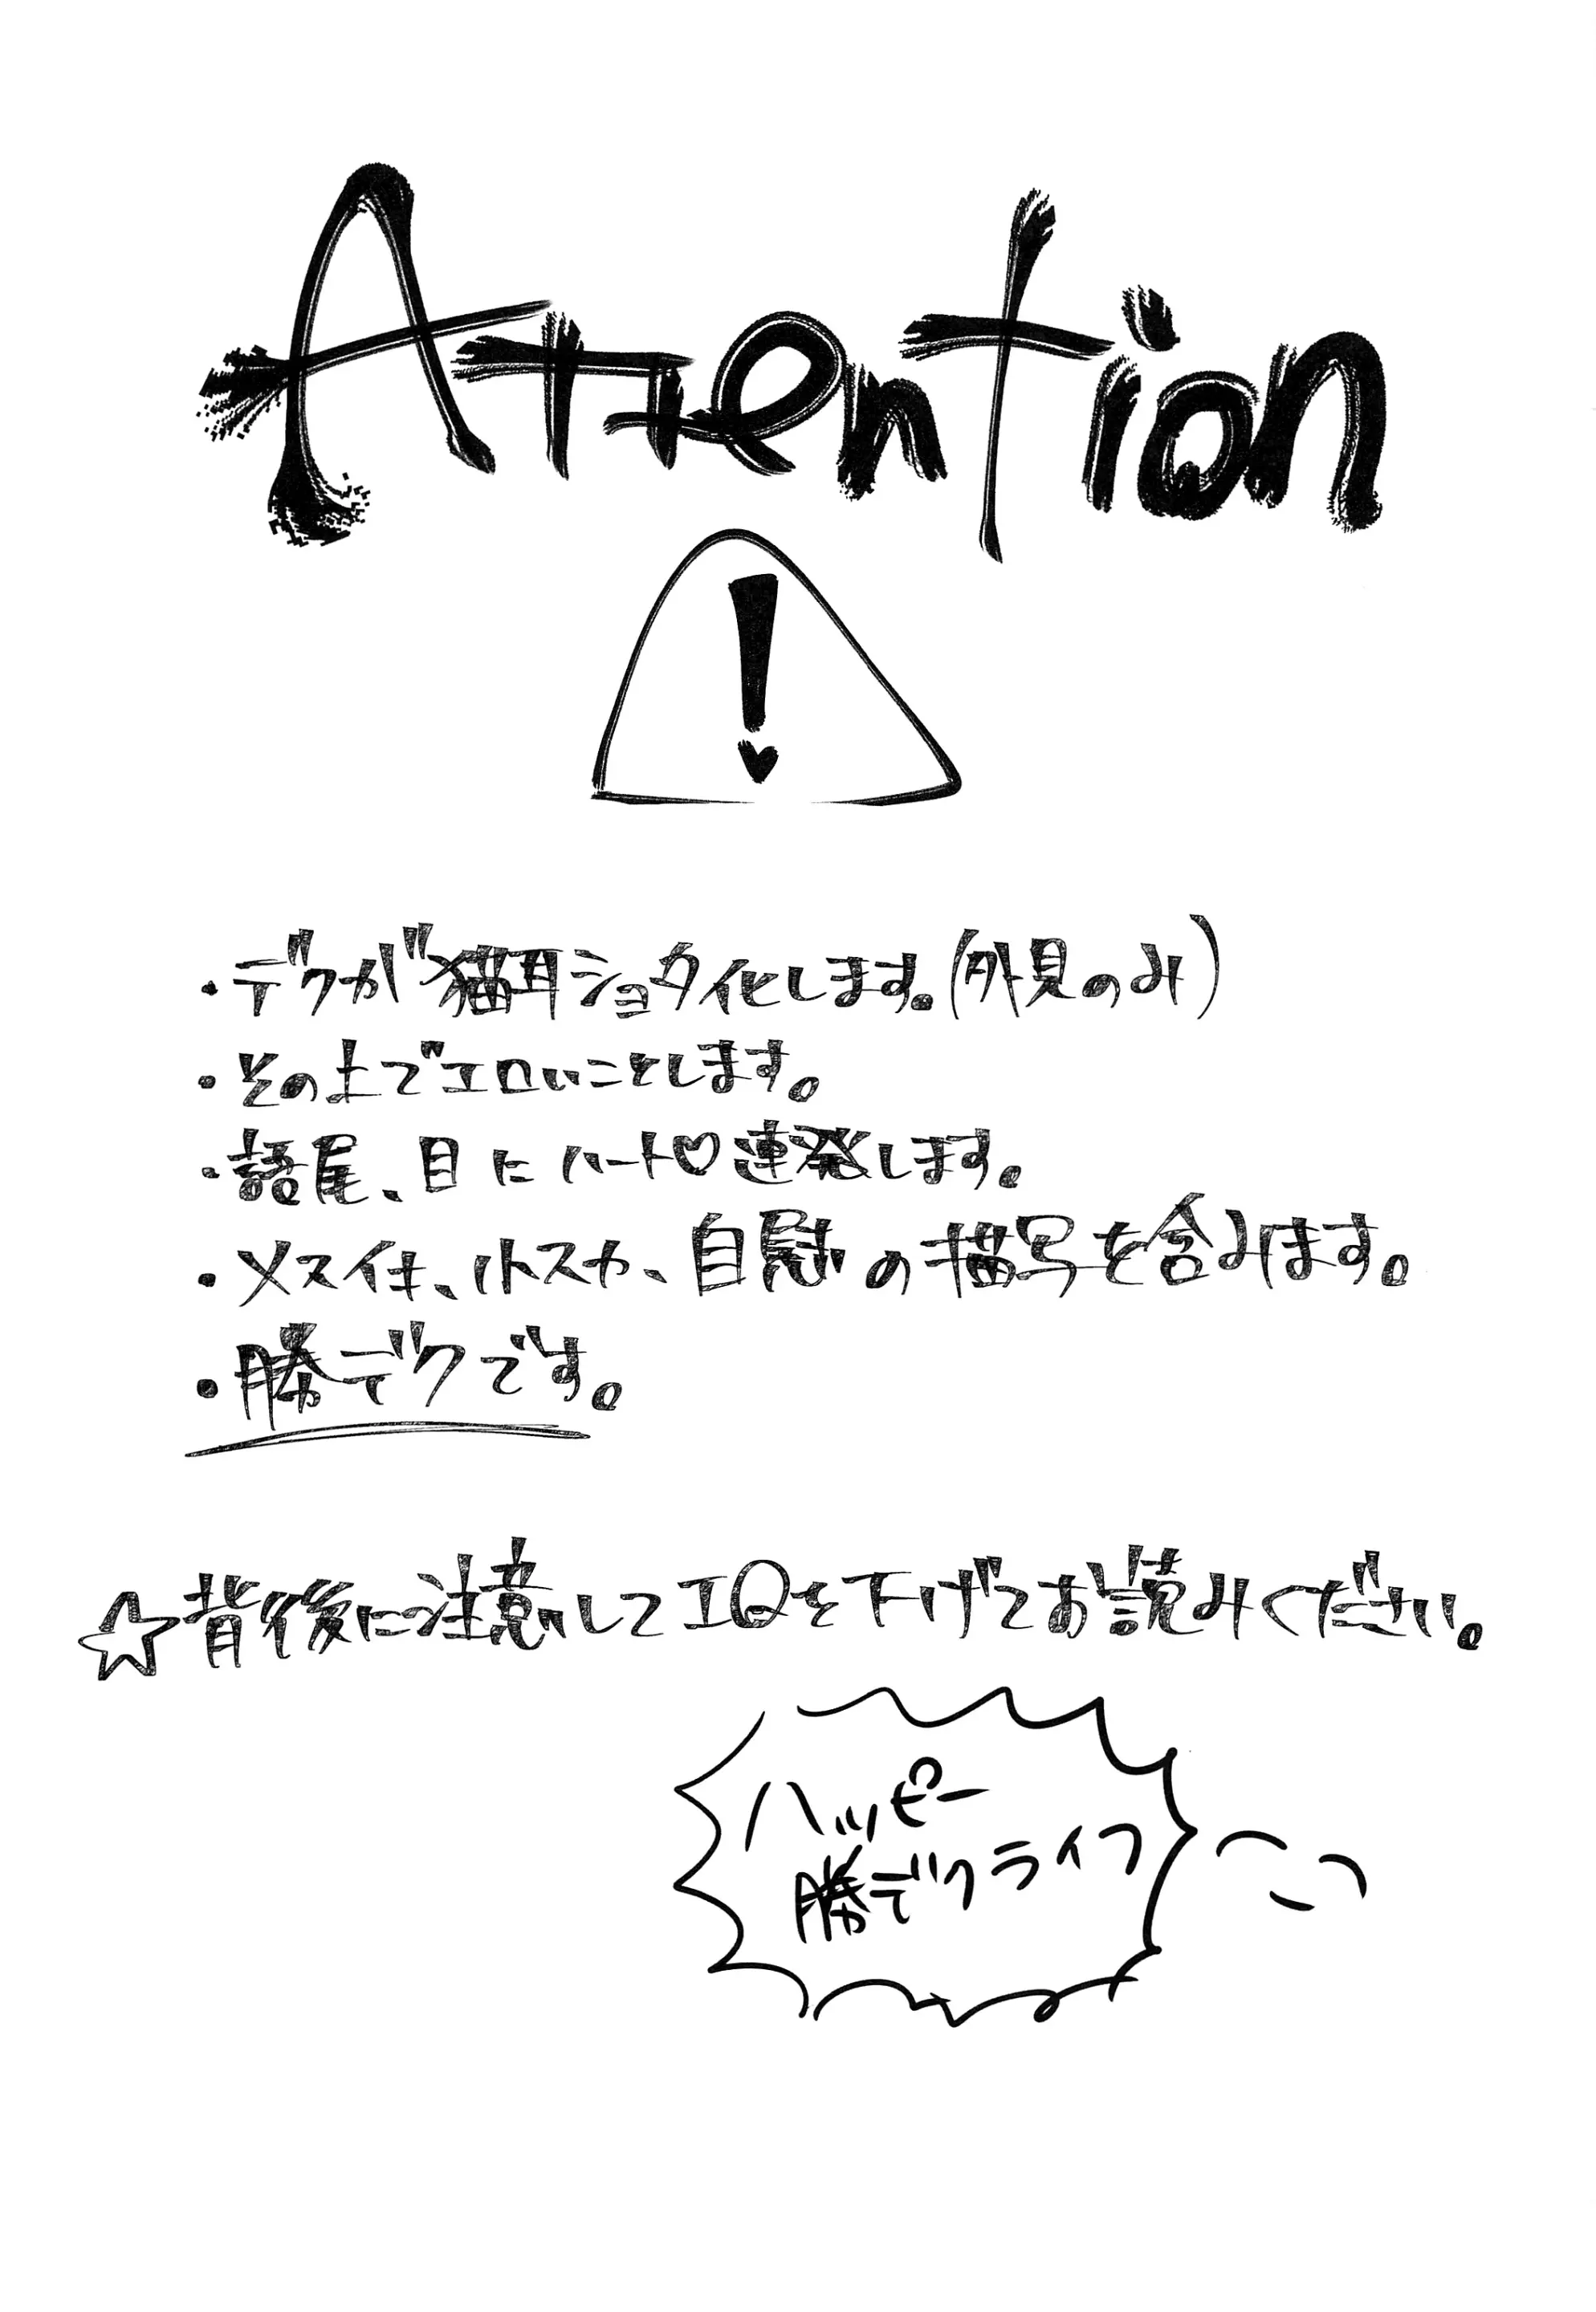 Attention
!
・デクが猫耳ショタ化します。(外見のみ)
・その上でエロいことします。
・語尾、目にハート♡連発します。
・メスイキ、ハトスカ、自慰の描写を含みます。
・勝デクです。
☆背後に注意してIQを下げてお読みください。
ハッピー
勝デクライフ